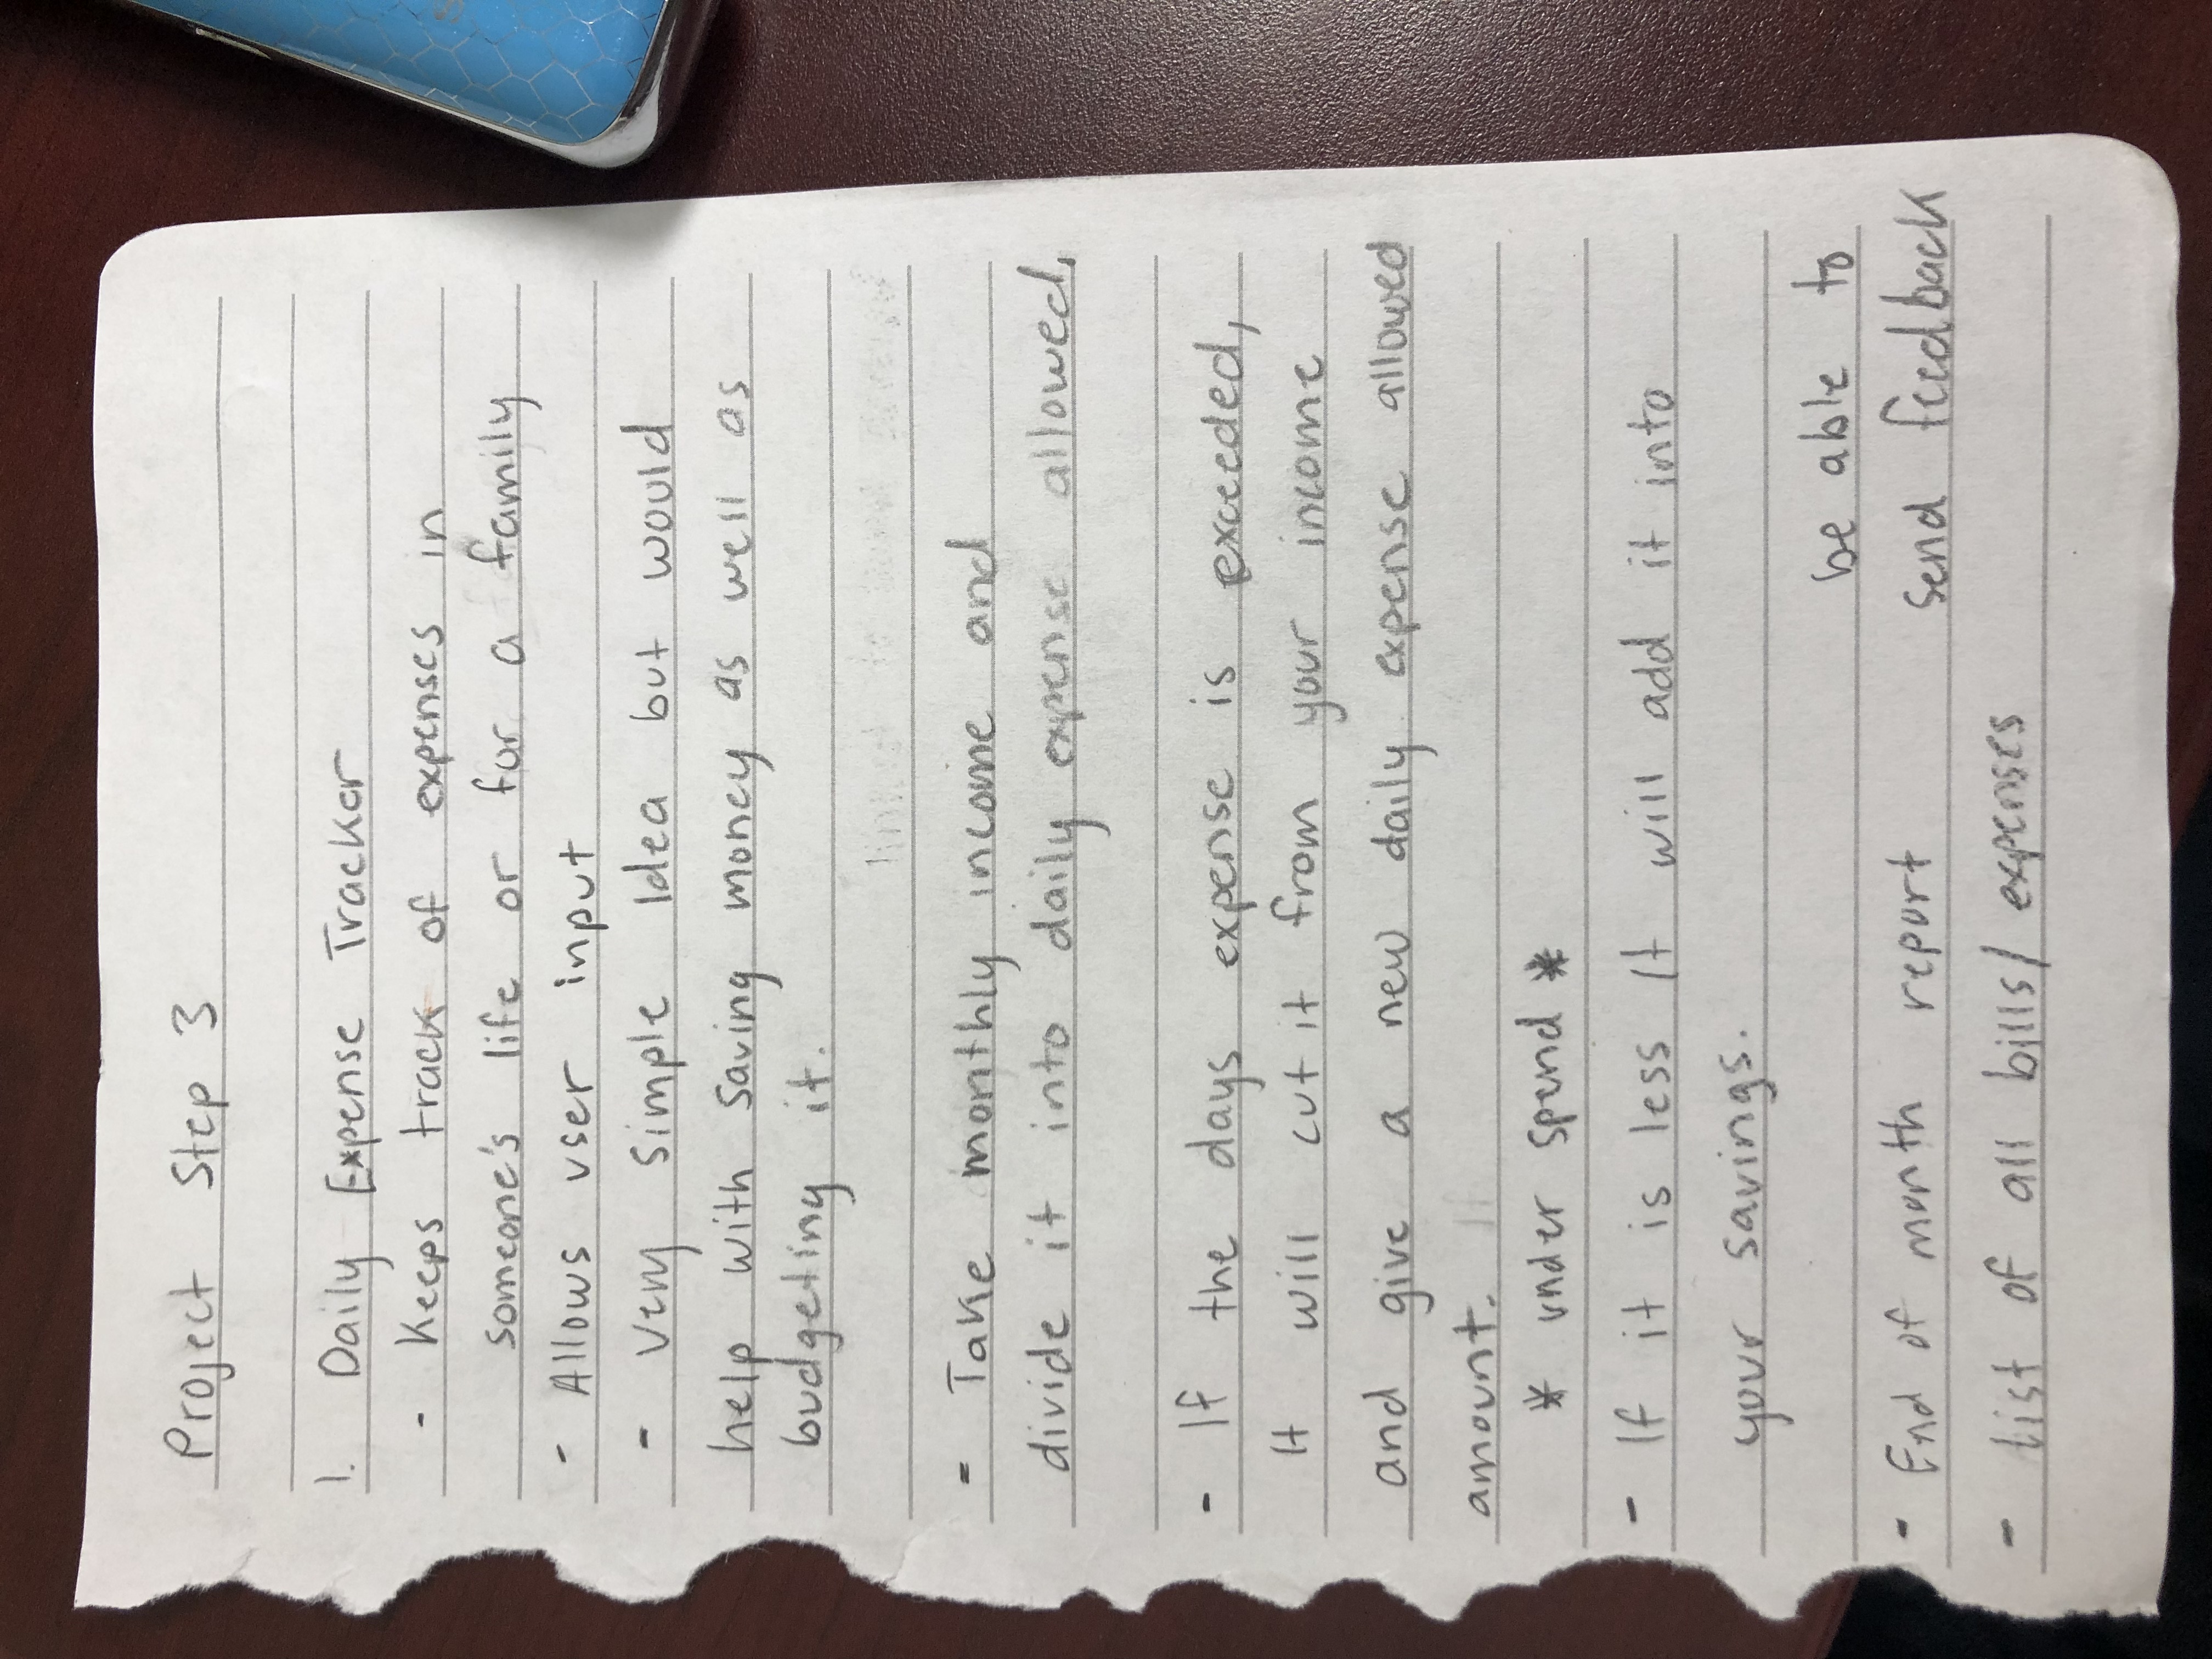 Project Step 3
1. Daily Expense Tracker
- Keeps track of expenses in
someone's life or for a family
- Allows user input
- Very simple Idea but would
help with saving money as well as
budgeting it.
- Take monthly income and
divide it into daily expense allowed.
- If the days expense is exceeded,
It will cut it from your income
and give a new daily expense allowed
amount.
* under spend *
- If it is less It will add it into
your savings.
be able to
- End of month report send feedback
- List of all bills/ expenses